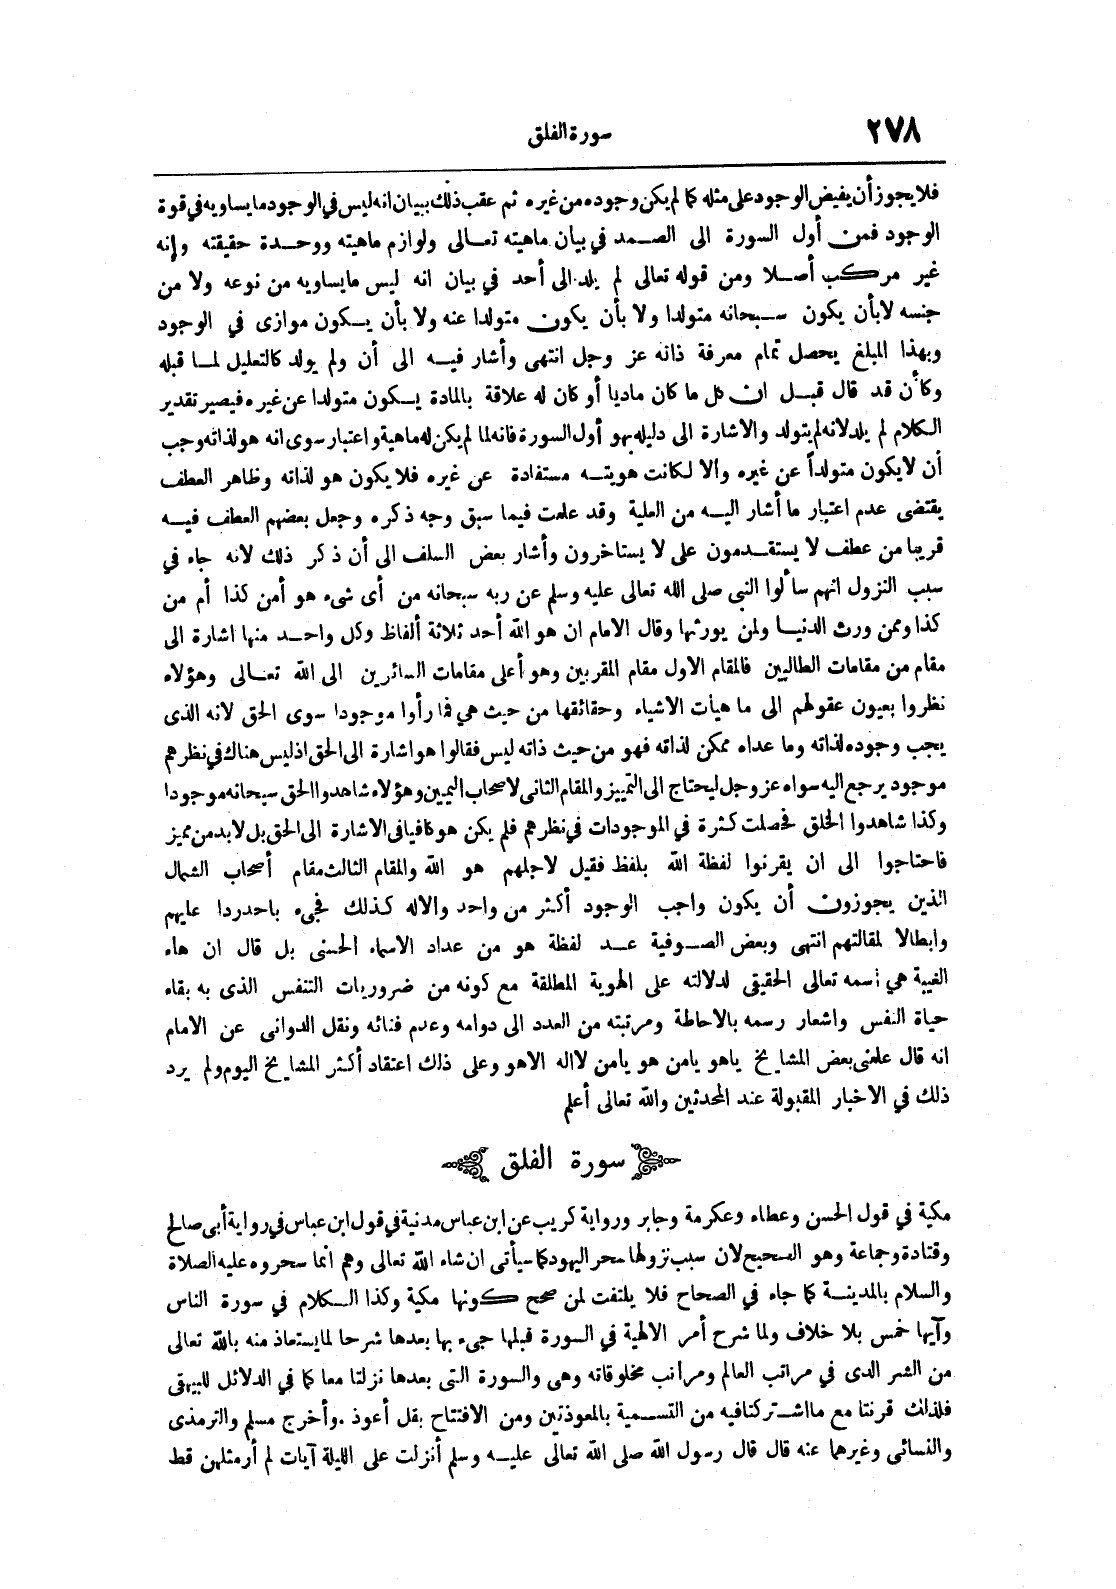 ٢٧٨
سورة الفلق
فلا يجوز أن يفيض الوجود على مثله كما لم يكن وجوده من غيره ثم عقب ذلك ببيان انه ليس في الوجود ما يساويه في قوة
الوجود فمن أول السورة الى الصمد في بيان ماهيته تعالى ولوازم ماهيته ووحدة حقيقته وإنه
غير مركب أصلا ومن قوله تعالى لم يلد الى أحد في بيان انه ليس ما يساويه من نوعه ولا من
جنسه لابأن يكون سبحانه متولدا ولا بأن يكون متولدا عنه ولا بأن يكون موازى في الوجود
وبهذا المبلغ يحصل تمام معرفة ذاته عز وجل انتهى وأشار فيه الى أن ولم يولد كالتعليل لما قبله
وكأن قد قال قبل ان كل ما كان ماديا أو كان له علاقة بالمادة يكون متولدا عن غيره فيصير تقدير
الكلام لم يلد لانه لم يتولد والاشارة الى دليله بهو أول السورة فانه لما لم يكن له ماهية واعتبار سوى انه هو لذاته وجب
أن لا يكون متولداً عن غيره وألا لكانت هويته مستفادة عن غيره فلا يكون هو لذاته وظاهر العطف
يقتضى عدم اعتبار ما أشار اليه من العلية وقد علمت فيما سبق وجه ذكره وجعل بعضهم العطف فيه
قريبا من عطف لا يستقدمون على لا يستاخرون وأشار بعض السلف الى أن ذكر ذلك لانه جاء في
سبب النزول انهم سألوا النبي صلى الله تعالى عليه وسلم عن ربه سبحانه من أى شىء هو أمن كذا أم من
كذا وممن ورث الدنيا ولمن يورثها وقال الامام ان هو الله أحد ثلاثة ألفاظ وكل واحد منها اشارة الى
مقام من مقامات الطالبين فالمقام الاول مقام المقربين وهو أعلى مقامات السائرين الى الله تعالى وهؤلاء
نظروا بعيون عقولهم الى ما هيات الاشياء وحقائقها من حيث هي فما رأوا موجودا سوى الحق لانه الذى
يجب وجوده لذاته وما عداه ممكن لذاته فهو من حيث ذاته ليس فقالوا هو اشارة الى الحق اذ ليس هناك في نظرهم
موجود يرجع اليه سواه عز وجل ليحتاج الى التمييز والمقام الثانى لاصحاب اليمين وهؤلاء شاهدوا الحق سبحانه موجودا
وكذا شاهدوا الخلق فحصلت كثرة في الموجودات في نظرهم فلم يكن هو كافيا في الاشارة الى الحق بل لا بد من مميز
فاحتاجوا الى ان يقرنوا لفظة الله بلفظ فقيل لاجلهم هو الله والمقام الثالث مقام أصحاب الشمال
الذين يجوزون أن يكون واجب الوجود أكثر من واحد والاله كذلك فجىء باحد ردا عليهم
وابطالا لمقالتهم انتهى وبعض الصوفية عد لفظة هو من عداد الاسماء الحسنى بل قال ان هاء
الغيبة هي أسمه تعالى الحقيقى لدلالته على الهوية المطلقة مع كونه من ضروريات التنفس الذى به بقاء
حياة النفس واشعار رسمه بالاحاطة ومرتبته من العدد الى دوامه وعدم فنائه ونقل الدوانى عن الامام
انه قال علمنى بعض المشايخ ياهو يامن هو يامن لااله الاهو وعلى ذلك اعتقاد أكثر المشايخ اليوم ولم يرد
ذلك في الاخبار المقبولة عند المحدثين والله تعالى أعلم
سورة الفلق
مكية في قول الحسن وعطاء وعكرمة وجابر ورواية كريب عن ابن عباس مدنية في قول ابن عباس في رواية أبى صالح
وقتادة وجماعة وهو الصحيح لان سبب نزولها سحر اليهود كما سيأتى ان شاء الله تعالى وهم انما سحروه عليه الصلاة
والسلام بالمدينة كما جاء في الصحاح فلا يلتفت لمن صحح كونها مكية وكذا الكلام في سورة الناس
وآيها خمس بلا خلاف ولما شرح أمر الالهية في السورة قبلها جىء بها بعدها شرحا لما يستعاذ منه بالله تعالى
من الشر الذى في مراتب العالم ومراتب مخلوقاته وهى والسورة التى بعدها نزلتا معا كما في الدلائل للبيهقى
فلذلك قرنتا مع ما اشتركتا فيه من التسمية بالمعوذتين ومن الافتتاح بقل أعوذ . وأخرج مسلم والترمذى
والنسائى وغيرهما عنه قال قال رسول الله صلى الله تعالى عليه وسلم أنزلت على الليلة آيات لم أر مثلهن قط